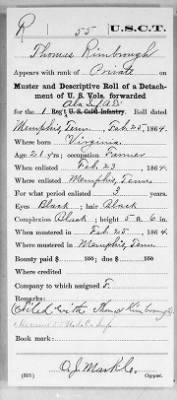 R 55 U.S.C.T.
Thomas Rimbrough
Appears with rank of Private on
Muster and Descriptive Roll of a Detach-
ment of U. S. Vols. forwarded
Ala Inf A.D.
for the 1 Reg't U. S. Col'd Infantry. Roll dated
Memphis, Tenn Feb 25, 1864.
Where born Virginia
Age 21 y'rs; occupation Farmer
When enlisted Feb 23, 1864.
Where enlisted Memphis, Tenn.
For what period enlisted 3 years.
Eyes Black; hair Black
Complexion Black; height 5 ft. 6 in.
When mustered in Feb 25, 1864.
Where mustered in Memphis, Tenn
Bounty paid $ 100; due $ 100
Where credited
Company to which assigned F.
Remarks:
Filed with Thomas Kimbrough
Book mark:
A.J. Markle
(335) Copyist.